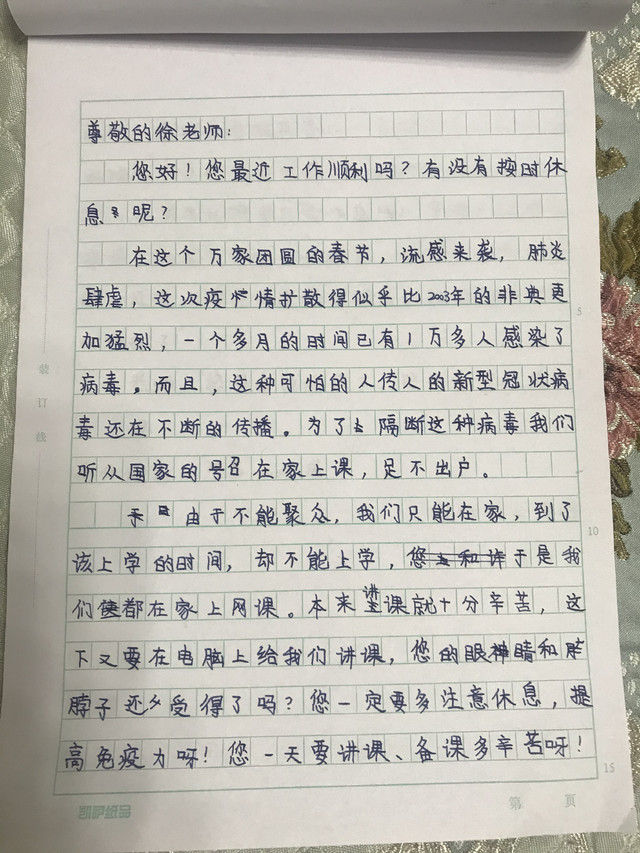 尊敬的徐老师：
您好！您最近工作顺利吗？有没有按时休
息呢？
在这个万家团圆的春节，流感来袭，肺炎
肆虐，这次疫情扩散得似乎比2003年的非典更
加猛烈，一个多月的时间已有1万多人感染了
病毒。而且，这种可怕的人传人的新型冠状病
毒还在不断的传播。为了隔断这种病毒我们
听从国家的号召在家上课，足不出户。
由于不能聚众，我们只能在家，到了
该上学的时间，却不能上学，于是我
们都在家上网课。本来讲课就十分辛苦，这
下又要在电脑上给我们讲课，您的眼睛和脖
子还受得了吗？您一定要多注意休息，提
高免疫力呀！您一天要讲课、备课多辛苦呀！
装订线
5
10
15
第 页